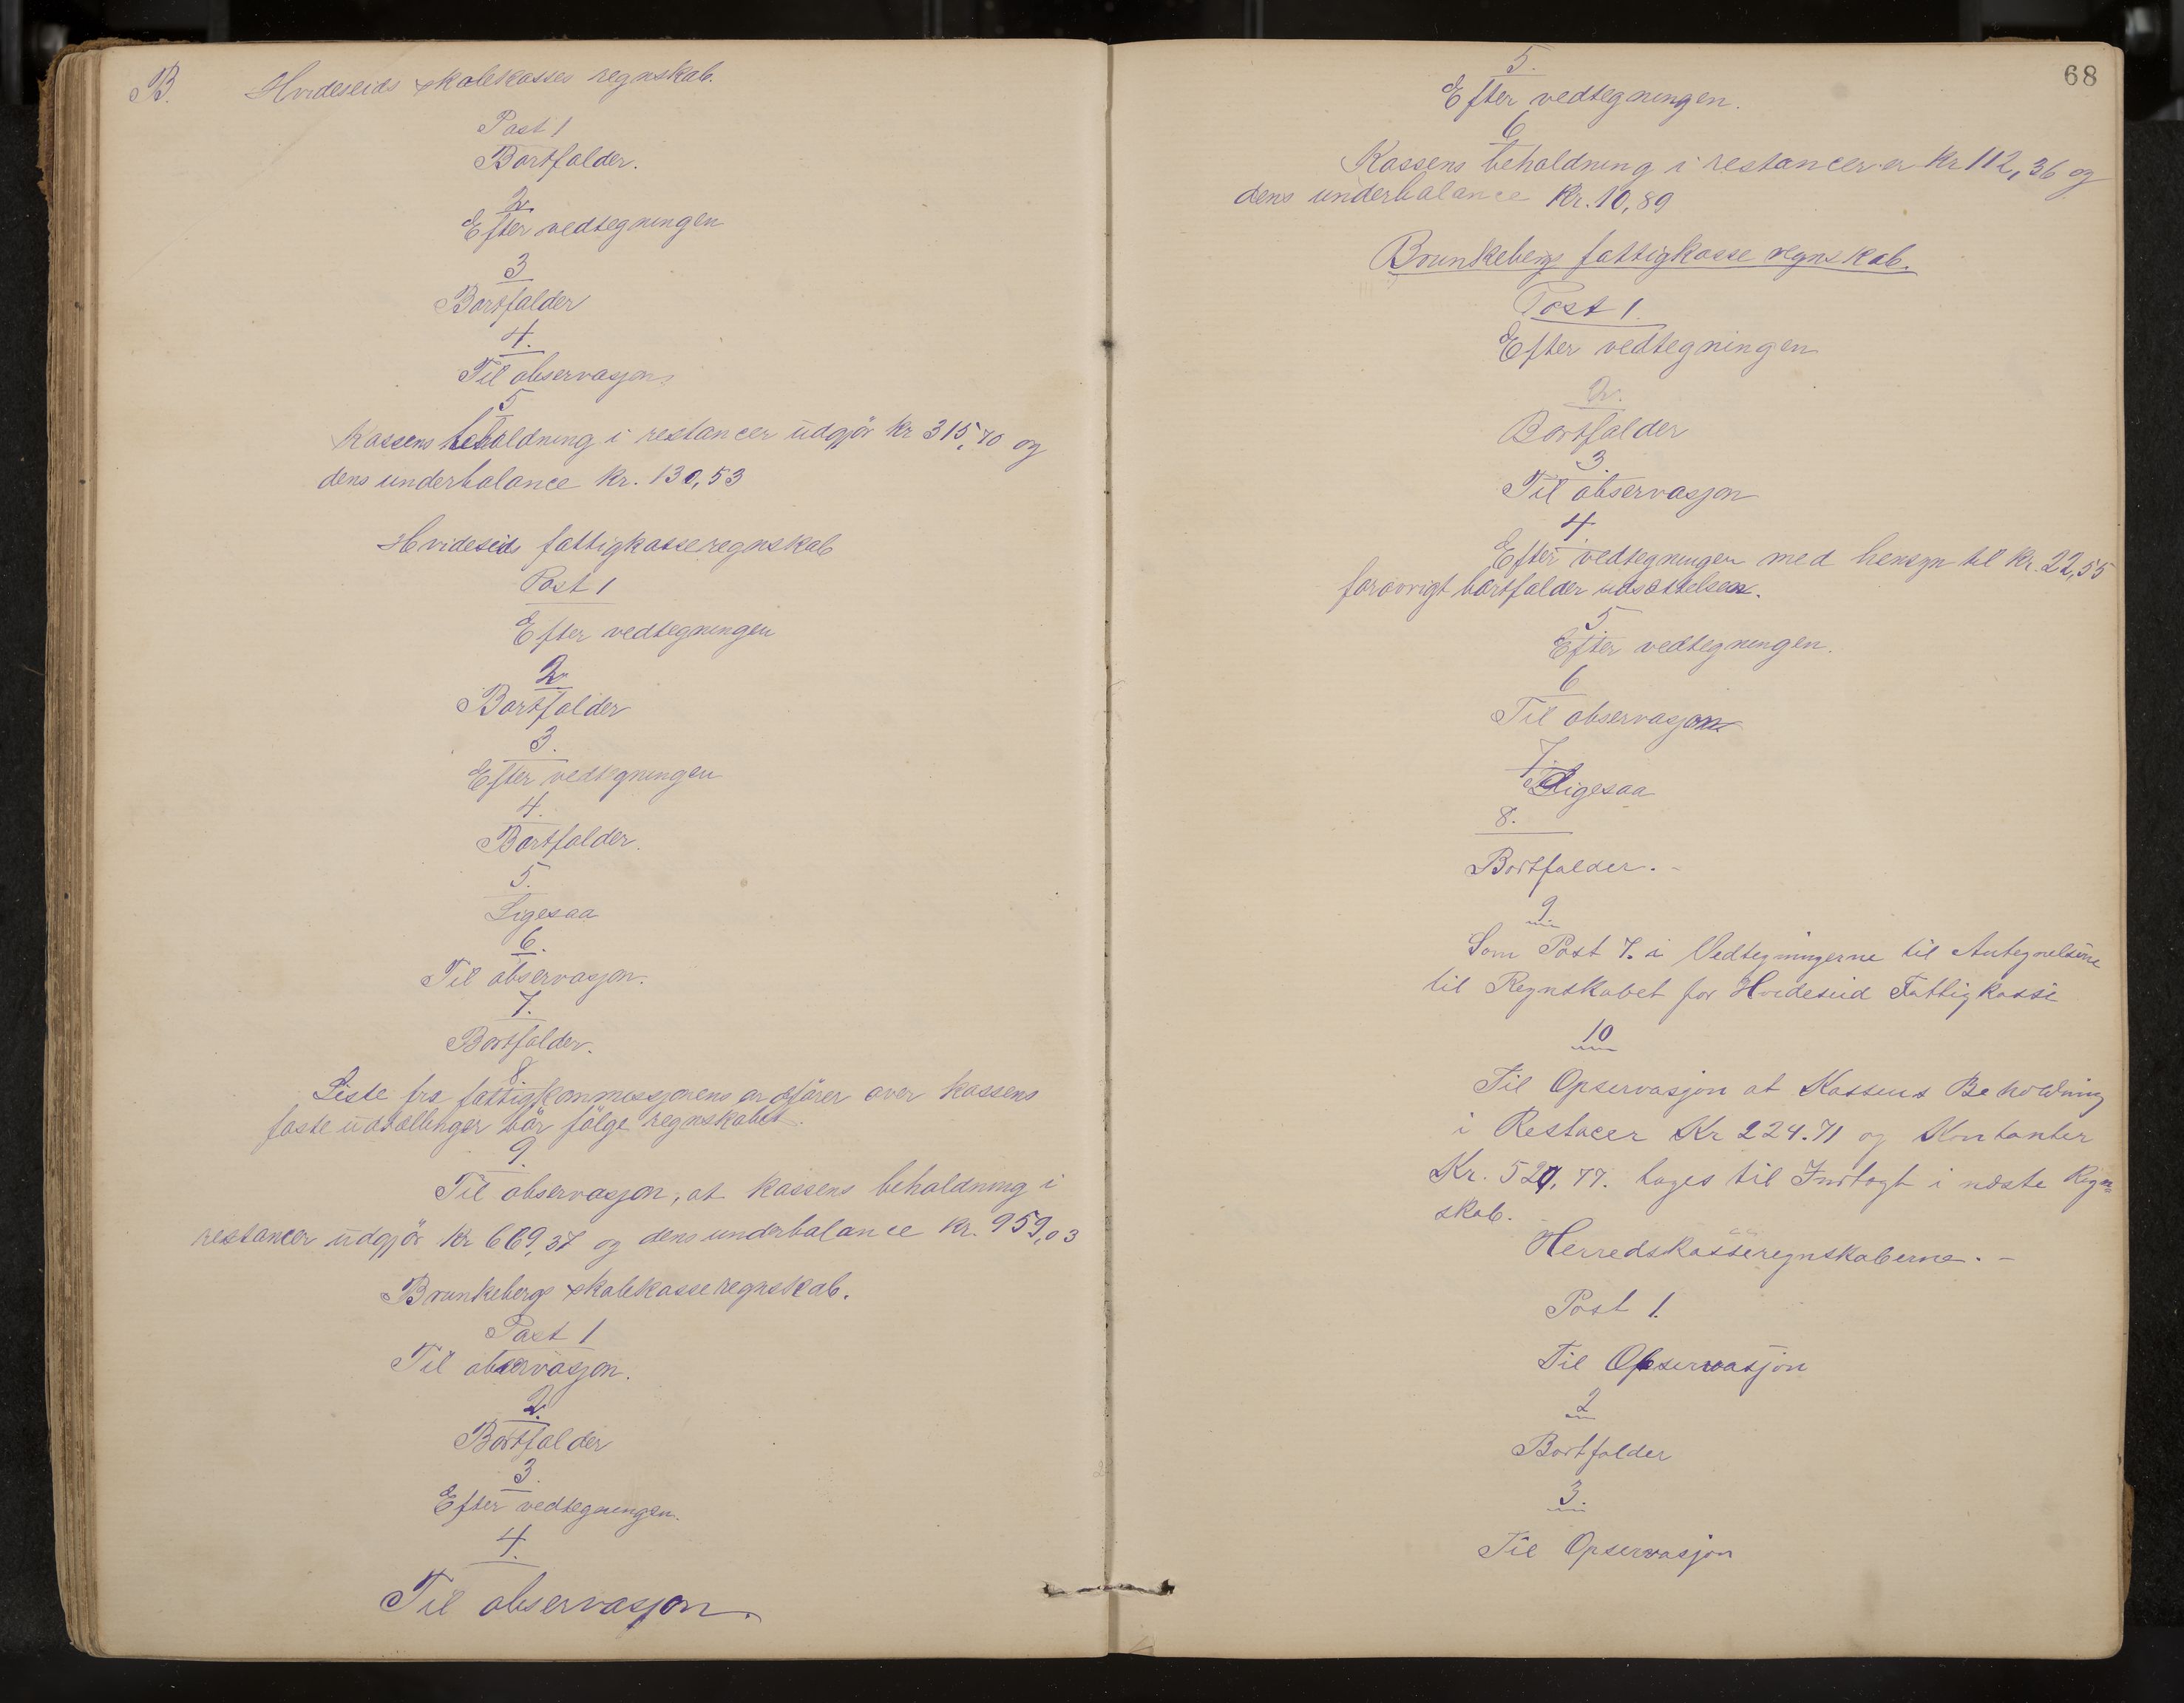 B. Hvideseids skolekasses regnskab.
Post 1
Bortfalder.
2.
Efter vedtegningen
3
Bortfalder
4.
Til observasjon.
5
Kassens beholdning i restancer udgjör kr 315,70 og
dens underbalance kr. 130,53
Hvideseids fattigkasseregnskab
Post 1
Efter vedtegningen
2
Bortfalder
3.
Efter vedtegningen
4.
Bortfalder.
5.
Ligesaa
6.
Til observasjon.
7.
Bortfalder.
8
Liste fra fattigkommissjonens ordförer over kassens
faste udtællinger bör fölge regnskabet.
9.
Til observasjon, at kassens beholdning i
restancer udgjör kr 669,37 og dens underbalance kr. 959,03
Brunkebergs skolekasseregnskab.
Post 1
Til observasjon.
2.
Bortfalder
3.
Efter vedtegningen.
4.
Til observasjon.
68
5.
Efter vedtegningen.
6
Kassens beholdning i restancer er kr 112,36 og
dens underbalance kr. 10,89
Brunkebergs fattigkasse regnskab.
Post 1.
Efter vedtegningen
2.
Bortfalder
3.
Til observasjon
4.
Efter vedtegningen med hensyn til kr. 22,55
forövrigt bortfalder udsættelsen.
5
Efter vedtegningen.
6
Til observasjon
7.
Ligesaa
8.
Bortfalder. -
9
Som Post 7. i Vedtegningerne til Antegnelserne
til Regnskabet for Hvideseid Fattigkasse
10
Til Opservasjon at Kassens Beholdning
i Restacer Kr 224.71 og Kontanter
Kr. 529,77. tages til Indtægt i næste Regn=
skab.
Herredskasseregnskaberne. -
Post 1.
Til Opservasjon
2
Bortfalder
3.
Til Opservasjon